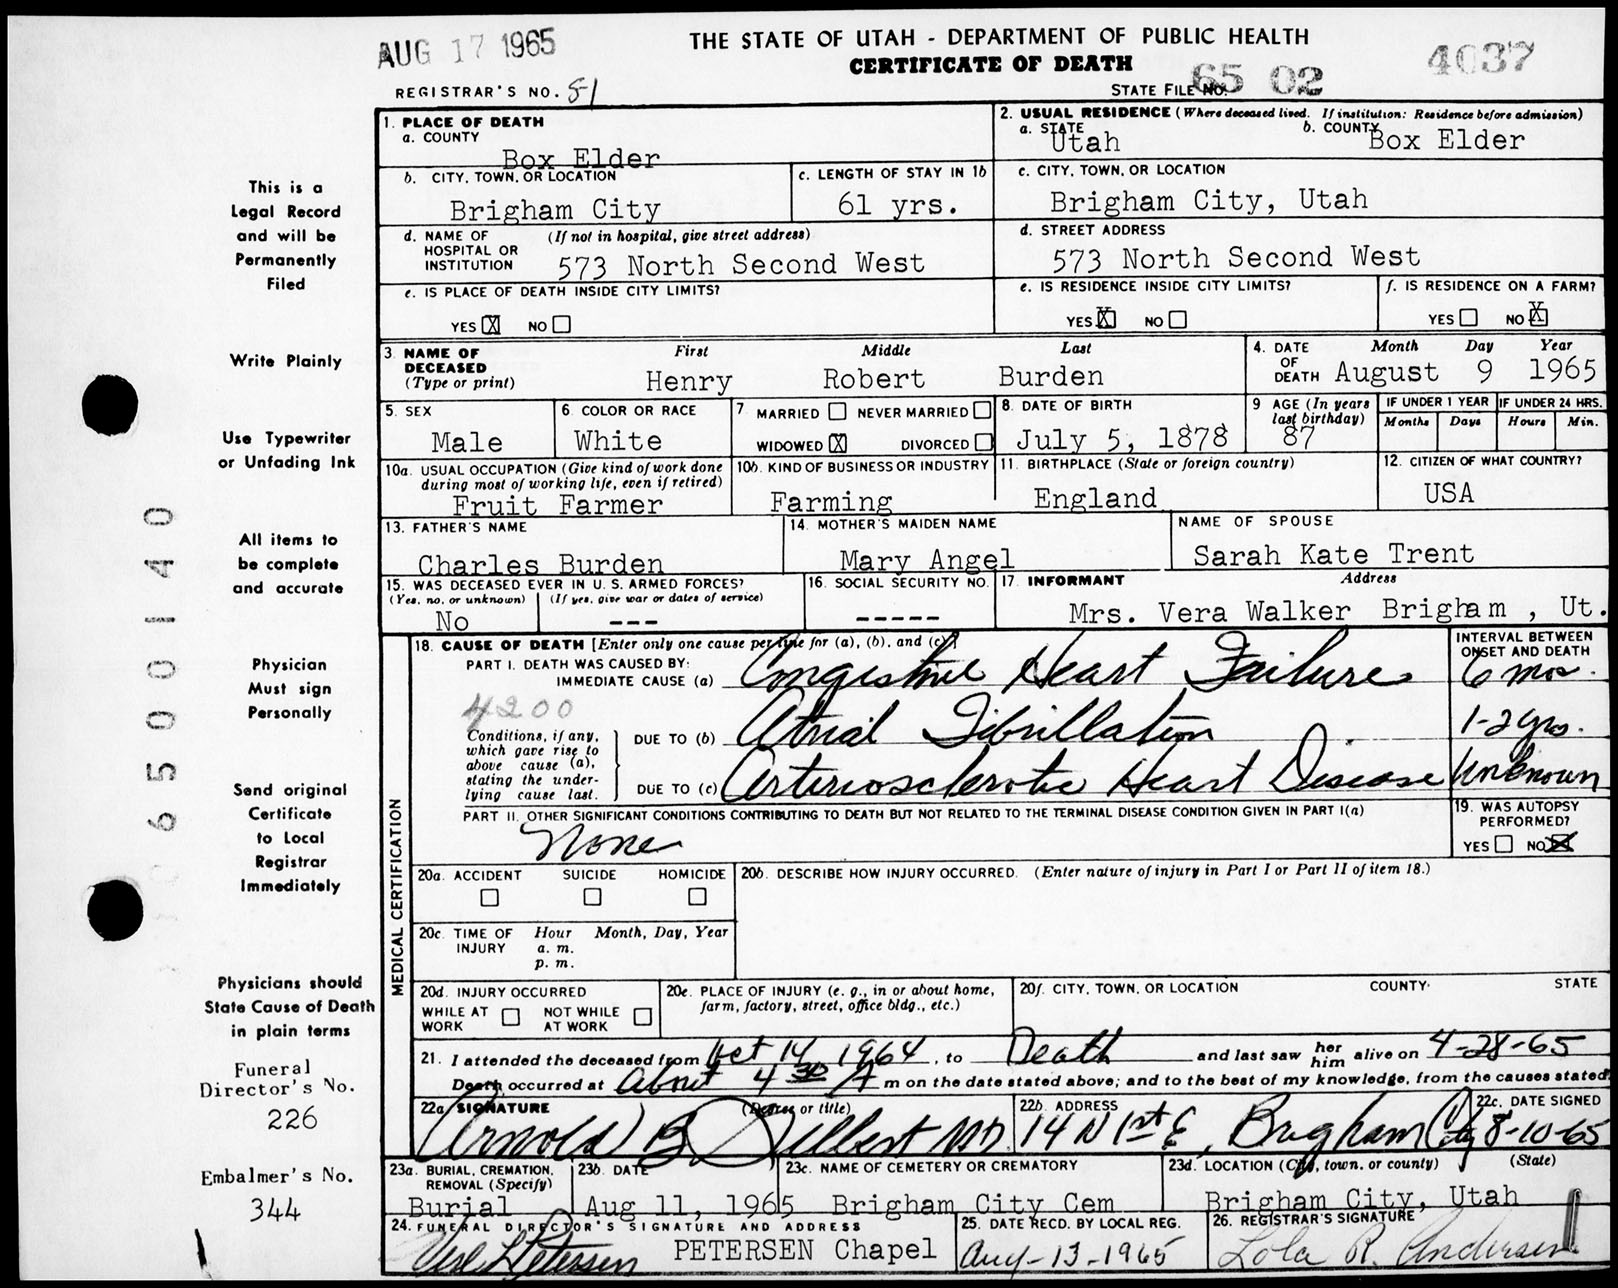 AUG 17 1965
THE STATE OF UTAH - DEPARTMENT OF PUBLIC HEALTH
CERTIFICATE OF DEATH
4037
REGISTRAR'S NO. 51
STATE FILE NO. 65 02
1. PLACE OF DEATH
a. COUNTY
Box Elder
2. USUAL RESIDENCE (Where deceased lived. If institution: Residence before admission)
a. STATE Utah b. COUNTY Box Elder
b. CITY, TOWN, OR LOCATION
Brigham City
c. LENGTH OF STAY IN 1b
61 yrs.
c. CITY, TOWN, OR LOCATION
Brigham City, Utah
d. NAME OF HOSPITAL OR INSTITUTION (If not in hospital, give street address)
573 North Second West
d. STREET ADDRESS
573 North Second West
e. IS PLACE OF DEATH INSIDE CITY LIMITS?
YES X NO
e. IS RESIDENCE INSIDE CITY LIMITS?
YES X NO
f. IS RESIDENCE ON A FARM?
YES NO X
3. NAME OF DECEASED (Type or print)
First Middle Last
Henry Robert Burden
4. DATE OF DEATH
Month Day Year
August 9 1965
5. SEX
Male
6. COLOR OR RACE
White
7. MARRIED NEVER MARRIED
WIDOWED X DIVORCED
8. DATE OF BIRTH
July 5, 1878
9 AGE (In years last birthday)
87
IF UNDER 1 YEAR
Months Days
IF UNDER 24 HRS.
Hours Min.
10a. USUAL OCCUPATION (Give kind of work done during most of working life, even if retired)
Fruit Farmer
10b. KIND OF BUSINESS OR INDUSTRY
Farming
11. BIRTHPLACE (State or foreign country)
England
12. CITIZEN OF WHAT COUNTRY?
USA
13. FATHER'S NAME
Charles Burden
14. MOTHER'S MAIDEN NAME
Mary Angel
NAME OF SPOUSE
Sarah Kate Trent
15. WAS DECEASED EVER IN U.S. ARMED FORCES?
(Yes, no, or unknown) (If yes, give war or dates of service)
No ---
16. SOCIAL SECURITY NO.
-----
17. INFORMANT Address
Mrs. Vera Walker Brigham , Ut.
MEDICAL CERTIFICATION
18. CAUSE OF DEATH [Enter only one cause per line for (a), (b), and (c)]
INTERVAL BETWEEN ONSET AND DEATH
PART I. DEATH WAS CAUSED BY:
IMMEDIATE CAUSE (a) Congestive Heart Failure 6 mos.
4200
Conditions, if any, which gave rise to above cause (a), stating the underlying cause last.
DUE TO (b) Atrial Fibrillation 1-2 yrs.
DUE TO (c) Arteriosclerotic Heart Disease Unknown
PART II. OTHER SIGNIFICANT CONDITIONS CONTRIBUTING TO DEATH BUT NOT RELATED TO THE TERMINAL DISEASE CONDITION GIVEN IN PART I(a)
None
19. WAS AUTOPSY PERFORMED?
YES NO X
20a. ACCIDENT SUICIDE HOMICIDE
20b. DESCRIBE HOW INJURY OCCURRED. (Enter nature of injury in Part I or Part II of item 18.)
20c. TIME OF INJURY Hour a. m. p. m. Month, Day, Year
20d. INJURY OCCURRED
WHILE AT WORK NOT WHILE AT WORK
20e. PLACE OF INJURY (e. g., in or about home, farm, factory, street, office bldg., etc.)
20f. CITY, TOWN, OR LOCATION COUNTY STATE
21. I attended the deceased from Oct 14, 1964, to Death and last saw her him alive on 4-28-65
Death occurred at About 4 30 A m on the date stated above; and to the best of my knowledge, from the causes stated
22a SIGNATURE (Degree or title)
Arnold B. Gilbert MD.
22b. ADDRESS
14 N 1st E, Brigham City
22c. DATE SIGNED
8-10-65
23a. BURIAL, CREMATION, REMOVAL (Specify)
Burial
23b. DATE
Aug 11, 1965
23c. NAME OF CEMETERY OR CREMATORY
Brigham City Cem
23d. LOCATION (City, town, or county) (State)
Brigham City, Utah
24. FUNERAL DIRECTOR'S SIGNATURE AND ADDRESS
Petersen PETERSEN Chapel
25. DATE RECD. BY LOCAL REG.
Aug-13-1965
26. REGISTRAR'S SIGNATURE
Lola R. Andersen
This is a
Legal Record
and will be
Permanently
Filed
Write Plainly
Use Typewriter
or Unfading Ink
All items to
be complete
and accurate
Physician
Must sign
Personally
Send original
Certificate
to Local
Registrar
Immediately
Physicians should
State Cause of Death
in plain terms
Funeral
Director's No.
226
Embalmer's No.
344
6500140